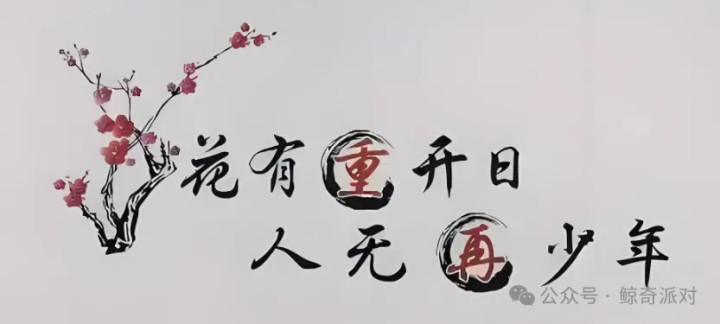 花有重开日
人无再少年
公众号·鲸奇派对